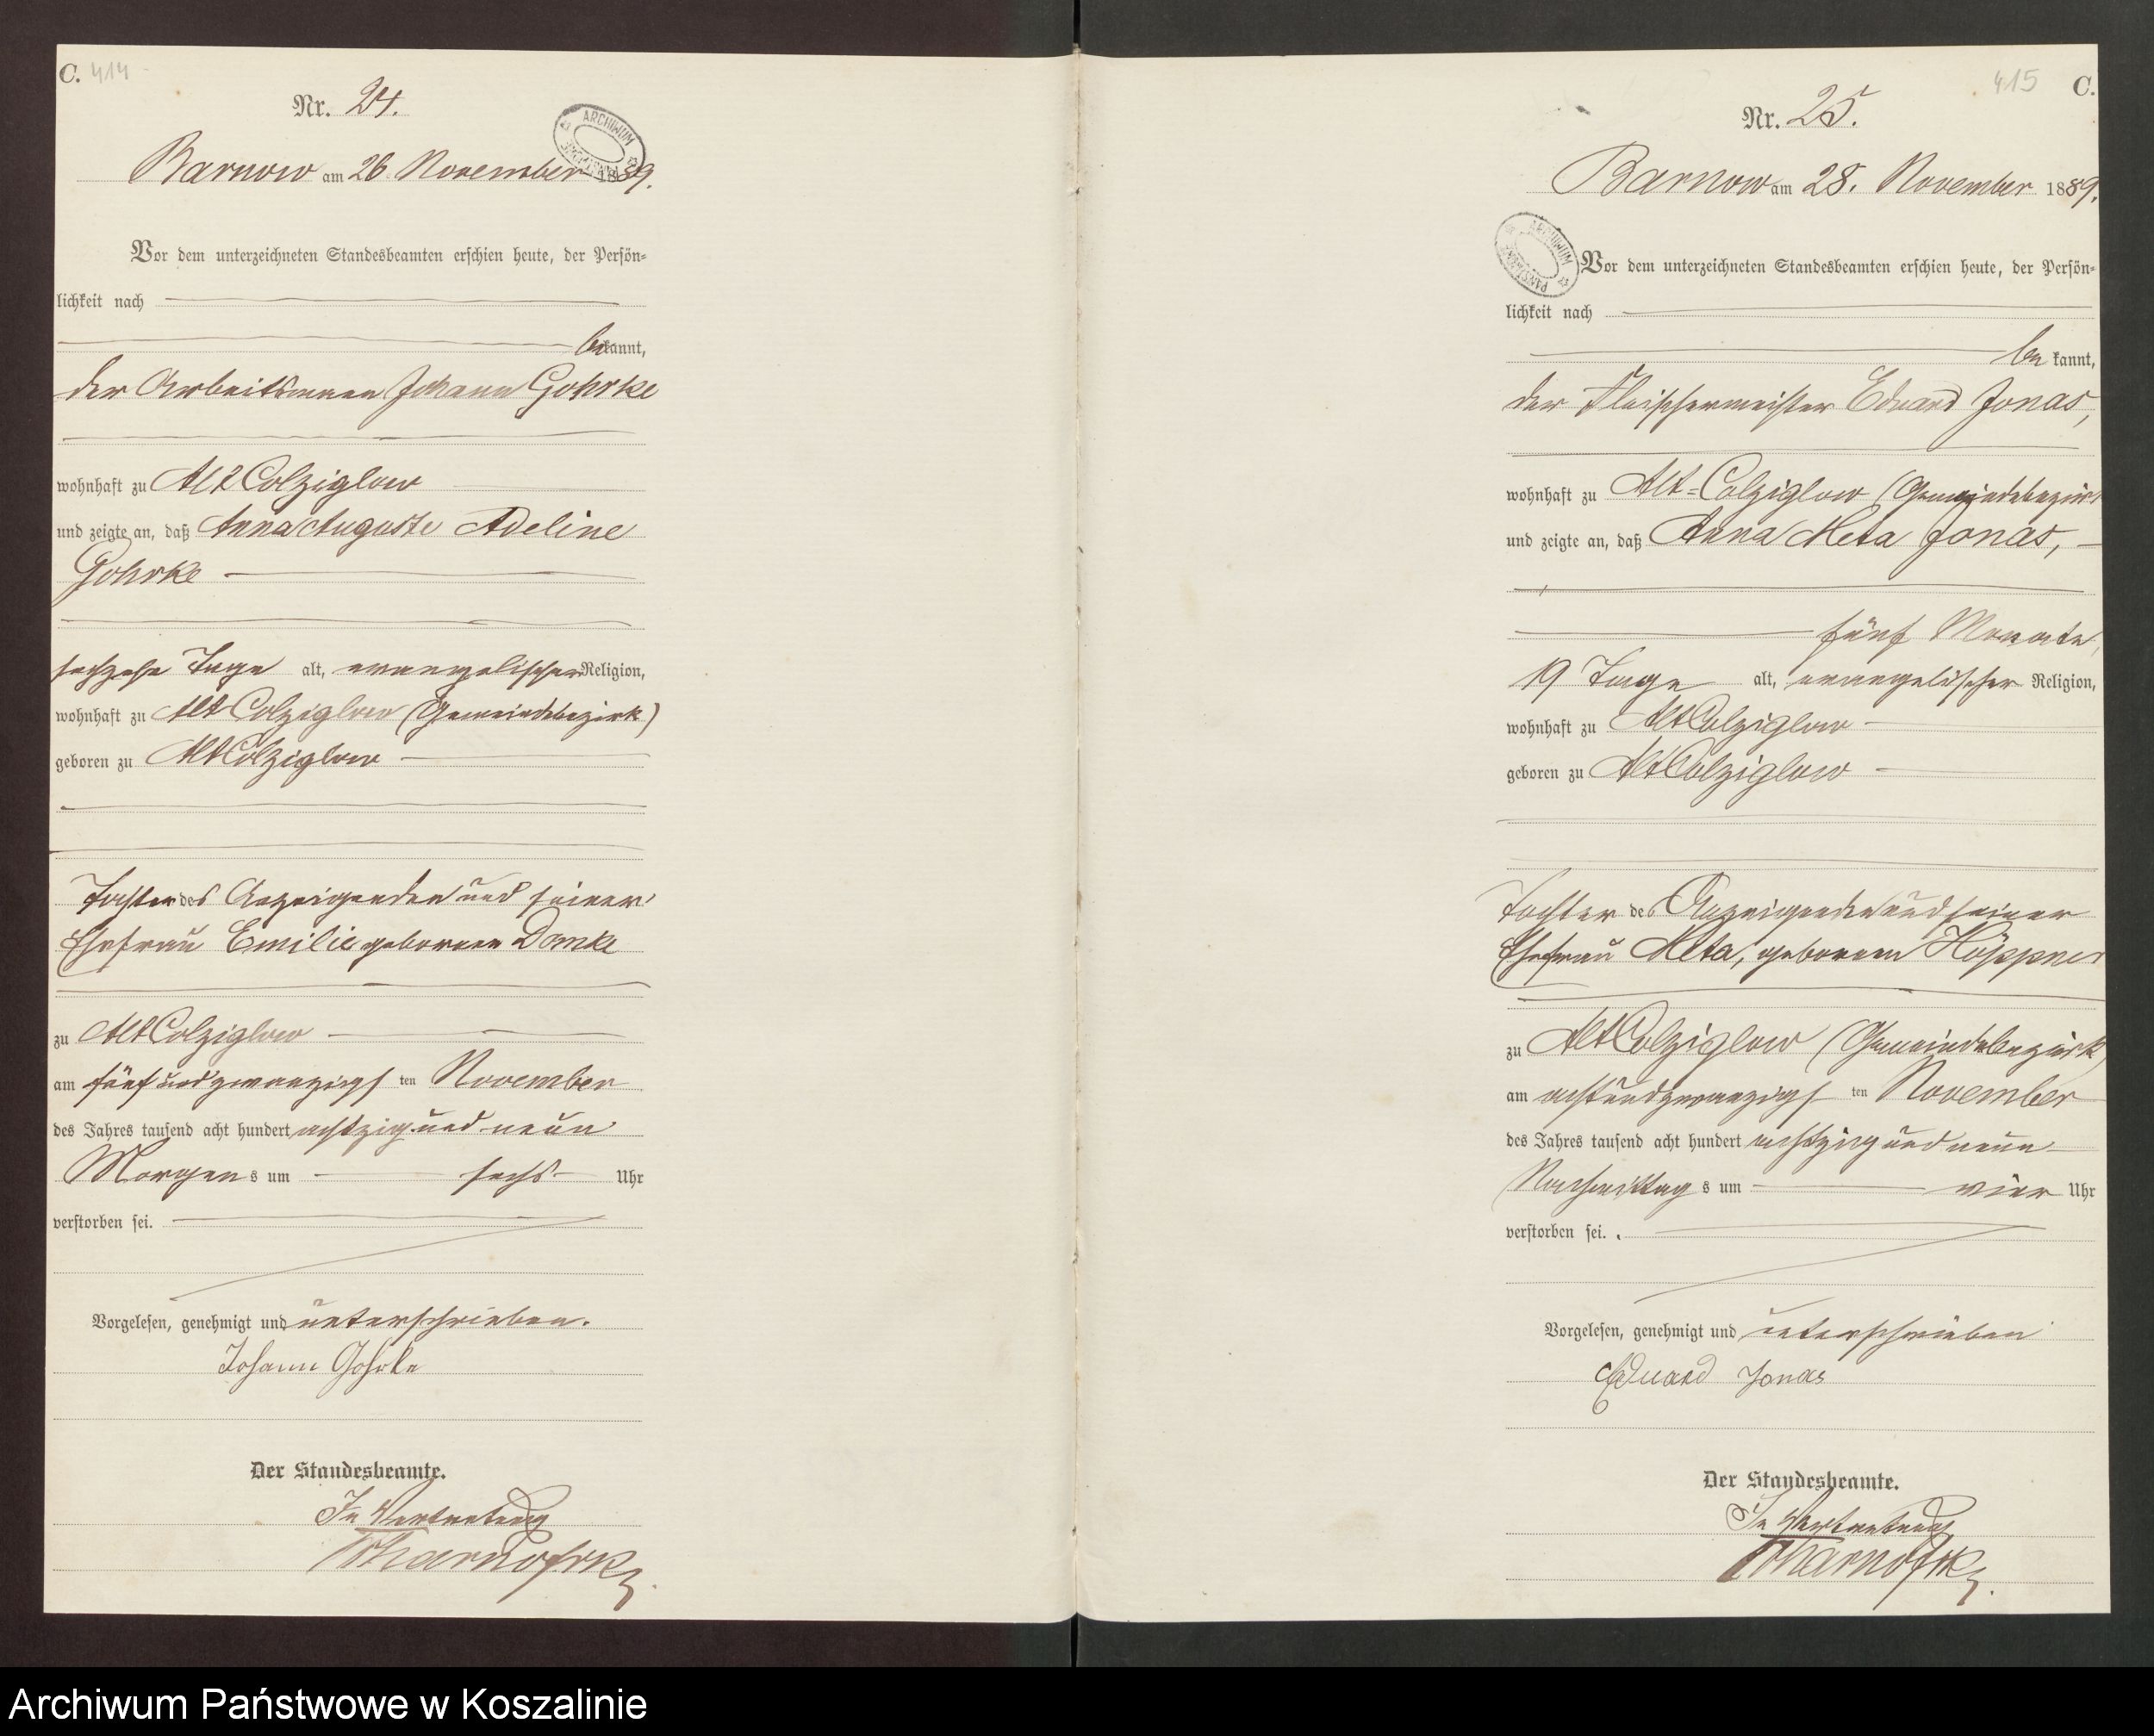 C. 414
Nr. 24.
ARCHIWUM
Barnow am 26. November 1889.
Vor dem unterzeichneten Standesbeamten erschien heute, der Persön-
lichkeit nach
bekannt,
der Arbeitsmann Johann Gohrke
wohnhaft zu Alt Colziglow
und zeigte an, daß Anna Auguste Adeline
Gohrke
sechzehn Tage alt, evangelischer Religion,
wohnhaft zu Alt Colziglow (Gemeindebezirk)
geboren zu Alt Colziglow
Tochter des Anzeigenden und seiner
Ehefrau Emilie geborenen Domke
zu Alt Colziglow
am fünf und zwanzigsten November
des Jahres tausend acht hundert achtzig und neun
Morgens um sechs Uhr
verstorben sei.
Vorgelesen, genehmigt und unterschrieben.
Johann Gohrke
Der Standesbeamte.
In Vertretung
415 C.
Nr. 25.
Barnow am 28. November 1889.
ARCHIWUM
Vor dem unterzeichneten Standesbeamten erschien heute, der Persön-
lichkeit nach
be kannt,
der Fleischermeister Eduard Jonas,
wohnhaft zu Alt-Colziglow (Gemeindebezirk
und zeigte an, daß Anna Meta Jonas,
fünf Monate,
19 Tage alt, evangelischer Religion,
wohnhaft zu Alt Colziglow
geboren zu Alt Colziglow
Tochter des Anzeigenden und seiner
Ehefrau Meta, geborenen Höppner
zu Alt Colziglow (Gemeindebezirk)
am achtundzwanzigsten November
des Jahres tausend acht hundert achtzig und neun
Nachmittags um vier Uhr
verstorben sei.
Vorgelesen, genehmigt und unterschrieben
Eduard Jonas
Der Standesbeamte.
In Vertretung
Archiwum Państwowe w Koszalinie